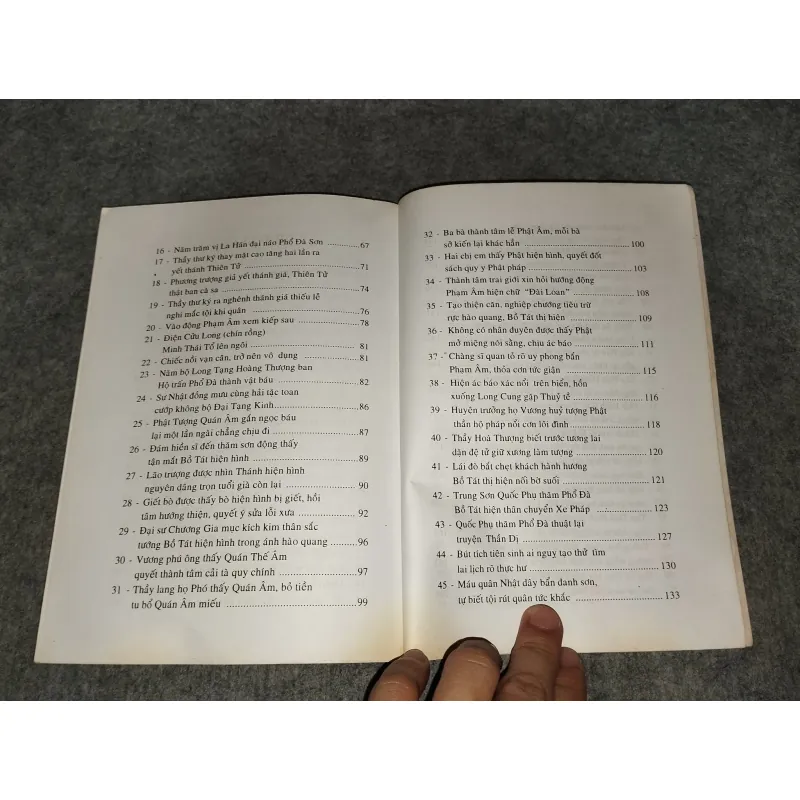 16 - Năm trăm vị La Hán đại náo Phổ Đà Sơn ............67
17 - Thầy thư ký thay mặt cao tăng hai lần ra
yết thánh Thiên Tử ............71
18 - Phương trượng giả yết thánh giá, Thiên Tử
thật ban cà sa ............74
19 - Thầy thư ký ra nghênh thánh giá thiếu lễ
nghi mắc tội khi quân ............76
20 - Vào động Phạm Âm xem kiếp sau ............78
21 - Điện Cửu Long (chín rồng)
Minh Thái Tổ lên ngôi ............81
22 - Chiếc nồi vạn cân, trở nên vô dụng ............81
23 - Năm bộ Long Tạng Hoàng Thượng ban
Hộ trấn Phổ Đà thành vật báu ............82
24 - Sư Nhật đồng mưu cùng hải tặc toan
cướp không bộ Đại Tạng Kinh ............86
25 - Phật Tượng Quán Âm gắn ngọc báu
lại một lần ngài chẳng chịu đi ............87
26 - Đám hiền sĩ đến thâm sơn động thấy
tận mắt Bồ Tát hiện hình ............89
27 - Lão trượng được nhìn Thánh hiện hình
nguyên dáng trọn tuổi già còn lại ............90
28 - Giết bò được thấy bò hiện hình bị giết, hồi
tâm hướng thiện, quyết ý sửa lỗi xưa ............92
29 - Đại sư Chương Gia mục kích kim thân sắc
tướng Bồ Tát hiện hình trong ánh hào quang ............96
30 - Vương phú ông thấy Quán Thế Âm
quyết thành tâm cải tà quy chính ............97
31 - Thầy lang họ Phó thấy Quán Âm, bỏ tiền
tu bổ Quán Âm miếu ............99
32 - Ba bà thành tâm lễ Phật Âm, mỗi bà
sở kiến lại khác hẳn ............100
33 - Hai chị em thấy Phật hiện hình, quyết đốt
sách quy y Phật pháp ............103
34 - Thành tâm trai giới xin hỏi hướng động
Phạm Âm hiện chữ "Đài Loan" ............108
35 - Tạo thiện căn, nghiệp chướng tiêu trừ
rực hào quang, Bồ Tát thị hiện ............109
36 - Không có nhân duyên được thấy Phật
mở miệng nói sằng, chịu ác báo ............111
37 - Chàng sĩ quan tỏ rõ uy phong bắn
Phạm Âm, thỏa cơn tức giận ............115
38 - Hiện ác báo xác nổi trên biển, hồn
xuống Long Cung gặp Thuỷ tề ............116
39 - Huyện trưởng họ Vương huỷ tượng Phật
thần hộ pháp nổi cơn lôi đình ............118
40 - Thầy Hoà Thượng biết trước tương lai
dặn đệ tử giữ xương làm tượng ............120
41 - Lái đò bất chẹt khách hành hương
Bồ Tát thị hiện nối bờ suối ............121
42 - Trung Sơn Quốc Phụ thăm Phổ Đà
Bồ Tát hiện thân chuyển Xe Pháp ............123
43 - Quốc Phụ thăm Phổ Đà thuật lại
truyện Thần Dị ............127
44 - Bút tích tiên sinh ai nguỵ tạo thử tìm
lai lịch rõ thực hư ............130
45 - Máu quân Nhật dây bẩn danh sơn,
tự biết tội rút quân tức khắc ............133